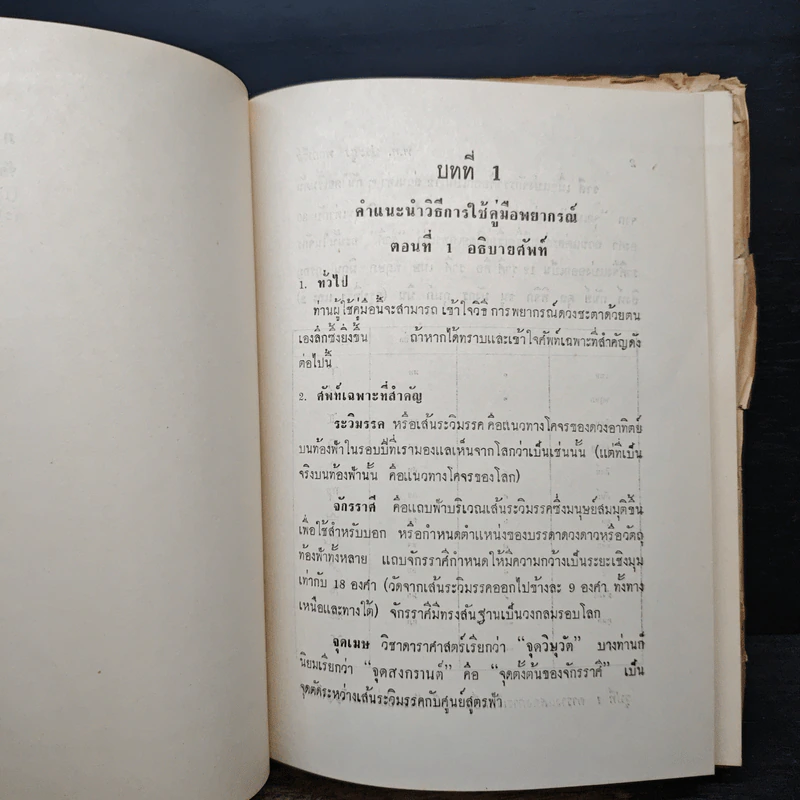 บทที่ 1
คำแนะนำวิธีการใช้คู่มือพยากรณ์
ตอนที่ 1 อธิบายศัพท์
1. ทั่วไป
ท่านผู้ใช้คู่มือนี้จะสามารถ เข้าใจวิธี การพยากรณ์ดวงชะตาด้วยตน
เองลึกซึ้งยิ่งขึ้น ถ้าหากได้ทราบและเข้าใจศัพท์เฉพาะที่สำคัญดัง
ต่อไปนี้
2. ศัพท์เฉพาะที่สำคัญ
ระวิมรรค หรือเส้นระวิมรรค คือแนวทางโคจรของดวงอาทิตย์
บนท้องฟ้าในรอบปีที่เรามองแลเห็นจากโลกว่าเป็นเช่นนั้น (แต่ที่เป็น
จริงบนท้องฟ้านั้น คือแนวทางโคจรของโลก)
จักรราศี คือแถบฟ้าบริเวณเส้นระวิมรรคซึ่งมนุษย์สมมุติขึ้น
เพื่อใช้สำหรับบอก หรือกำหนดตำแหน่งของบรรดาดวงดาวหรือวัตถุ
ท้องฟ้าทั้งหลาย แถบจักรราศีกำหนดให้มีความกว้างเป็นระยะเชิงมุม
เท่ากับ 18 องศา (วัดจากเส้นระวิมรรคออกไปข้างละ 9 องศา ทั้งทาง
เหนือและทางใต้) จักรราศีมีทรงสันฐานเป็นวงกลมรอบโลก
จุดเมษ วิชาดาราศาสตร์เรียกว่า “จุดวิษุวัต” บางท่านก็
นิยมเรียกว่า “จุดสงกรานต์” คือ “จุดตั้งต้นของจักรราศี” เป็น
จุดตัดระหว่างเส้นระวิมรรคกับศูนย์สูตรฟ้า